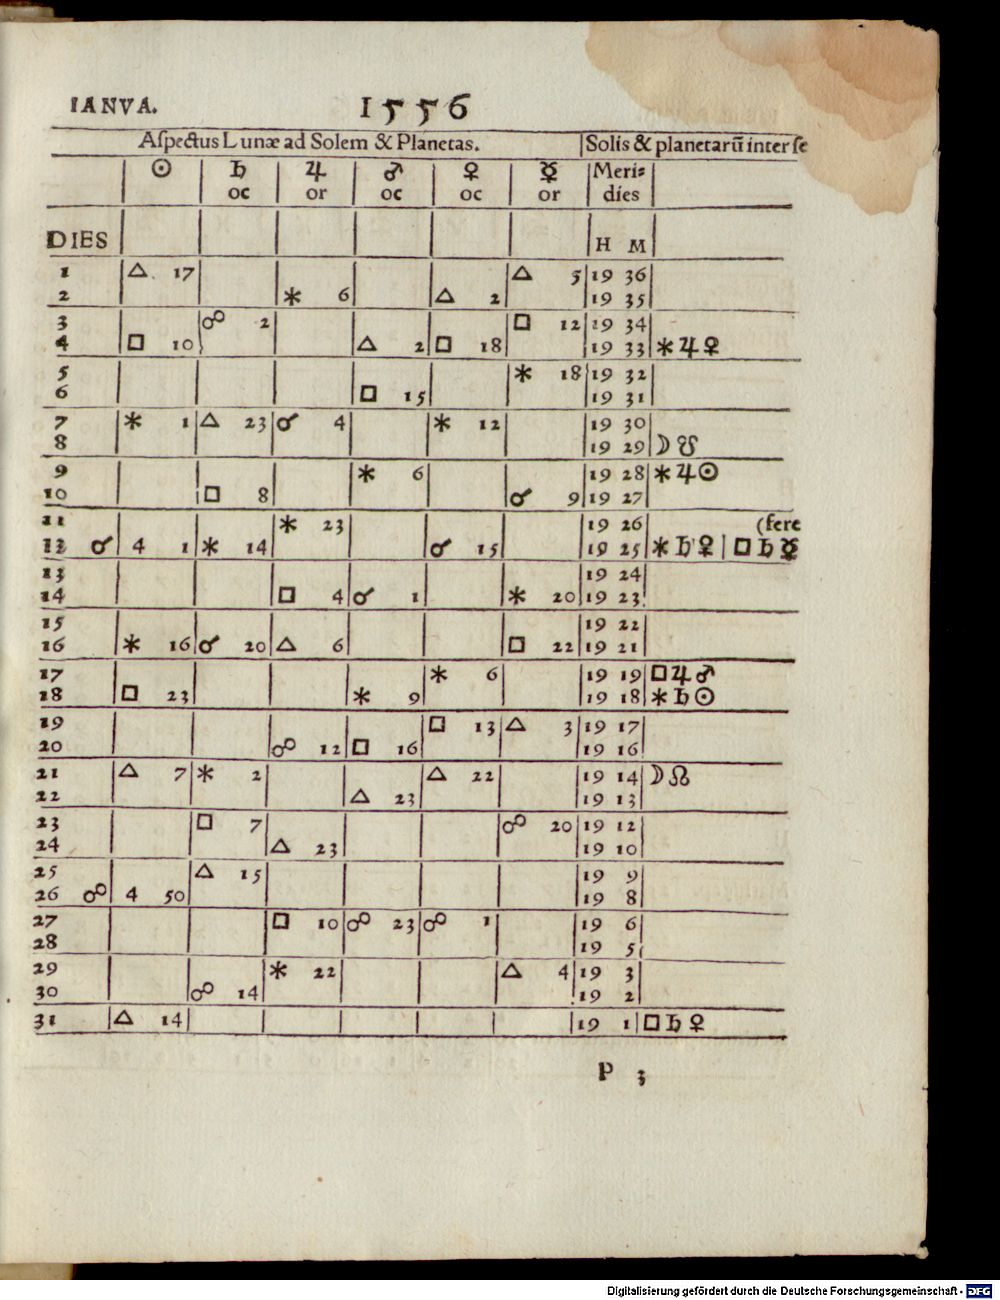 IANVA. 1556
Aſpectus Lunæ ad Solem & Planetas. Solis & planetarũ inter ſe
☉ ♄ ♃ ♂ ♀ ☿ Meri=
oc or oc oc or dies
DIES H M
1 △ 17 △ 5 19 36
2 ⚹ 6 △ 2 19 35
3 ☍ 2 □ 12 19 34
4 □ 10 △ 2 □ 18 19 33 ⚹ ♃ ♀
5 ⚹ 18 19 32
6 □ 15 19 31
7 ⚹ 1 △ 23 ☌ 4 ⚹ 12 19 30
8 19 29 ☽ ☋
9 ⚹ 6 19 28 ⚹ ♃ ☉
10 □ 8 ☌ 9 19 27
11 ⚹ 23 19 26 (fere
12 ☌ 4 1 ⚹ 14 ☌ 15 19 25 ⚹ ♄ ♀ | □ ♄ ☿
13 19 24
14 □ 4 ☌ 1 ⚹ 20 19 23
15 19 22
16 ⚹ 16 ☌ 20 △ 6 □ 22 19 21
17 ⚹ 6 19 19 □ ♃ ♂
18 □ 23 ⚹ 9 19 18 ⚹ ♄ ☉
19 □ 13 △ 3 19 17
20 ☍ 12 □ 16 19 16
21 △ 7 ⚹ 2 △ 22 19 14 ☽ ☊
22 △ 23 19 13
23 □ 7 ☍ 20 19 12
24 △ 23 19 10
25 △ 15 19 9
26 ☍ 4 50 19 8
27 □ 10 ☍ 23 ☍ 1 19 6
28 19 5
29 ⚹ 22 △ 4 19 3
30 ☍ 14 19 2
31 △ 14 19 1 □ ♄ ♀
P 3
Digitalisierung gefördert durch die Deutsche Forschungsgemeinschaft - DFG